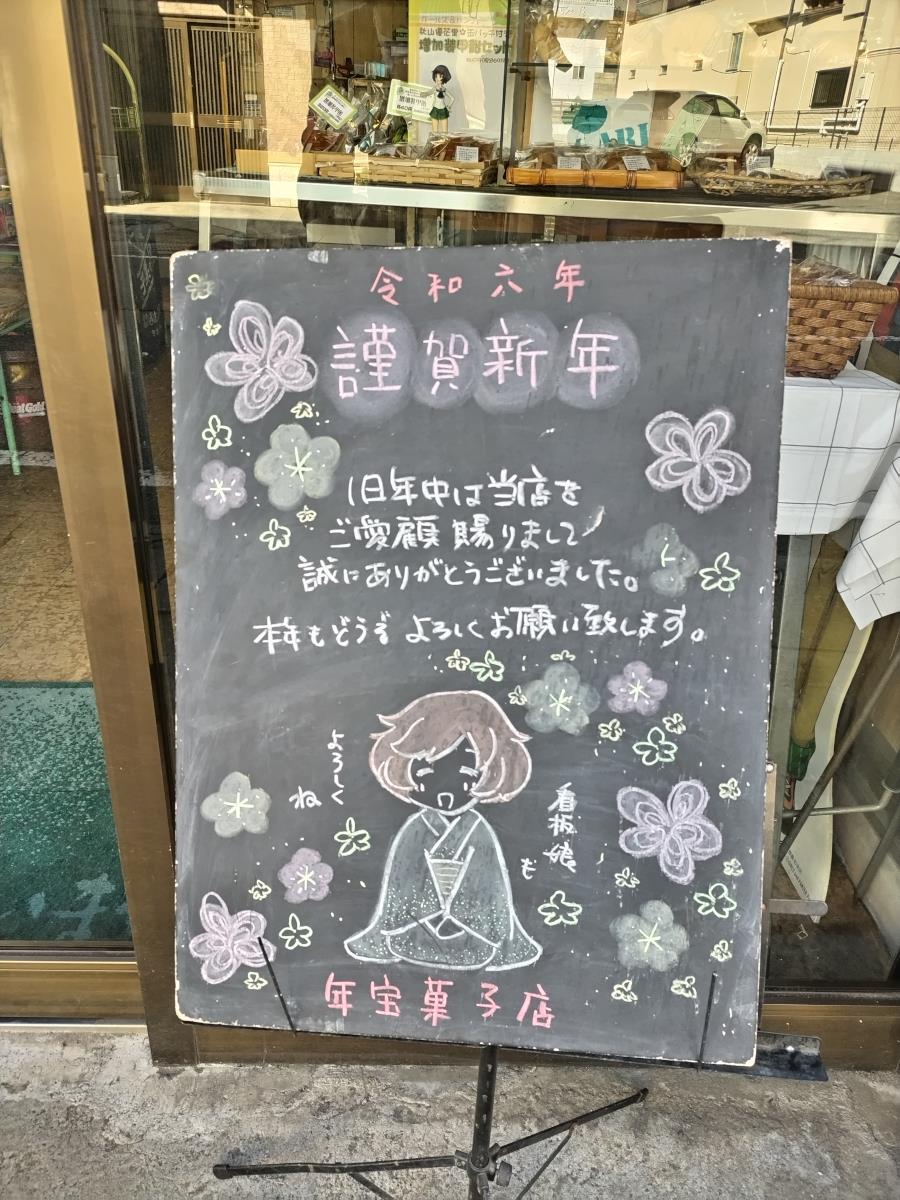 増加装甲飴セット
令和六年
謹賀新年
旧年中は当店を
ご愛顧賜りまして
誠にありがとうございました。
本年もどうぞ よろしくお願い致します。
看板娘も
よろしくね
年宝菓子店